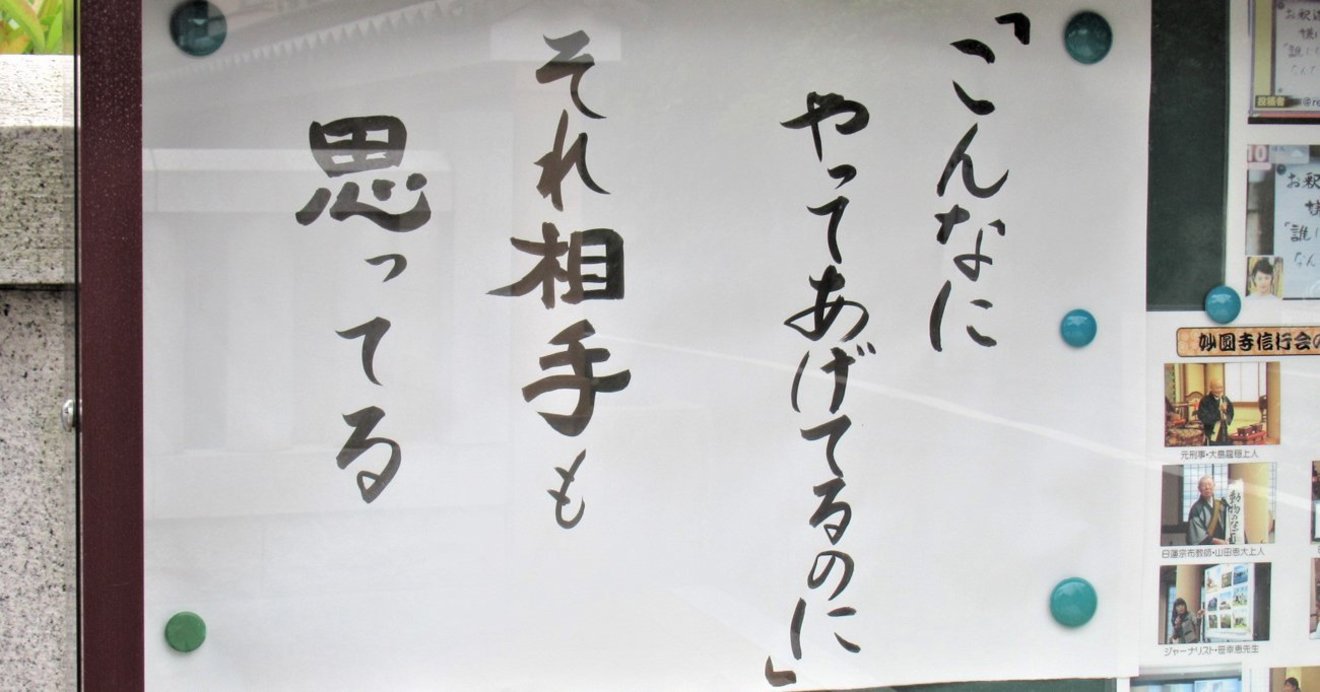 「こんなに
やってあげてるのに」
それ相手も
思ってる
お釈
「誰に
投稿者
10
お釈
「誰に
なん
妙圓寺信行会の
日蓮宗布教師・山田恵大上人
ジャーナリスト・笹幸恵先生